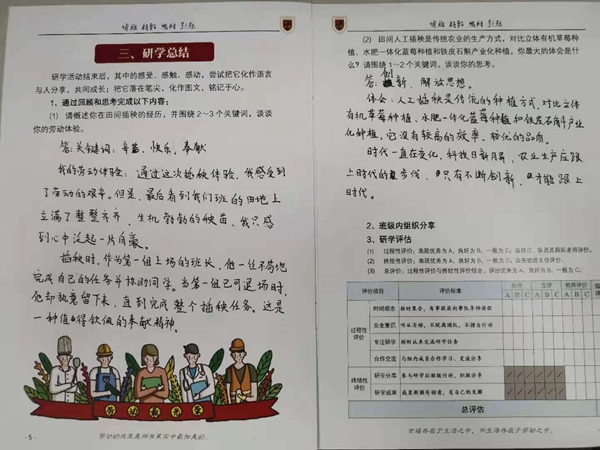 三、研学总结
研学活动结束后，其中的感受、感触、感动，尝试把它化作语言
与人分享，共同成长；把它落在笔尖，化作图文，铭记于心。
1、通过回顾和思考完成以下内容：
(1) 请概述你在田间插秧的经历，并围绕2～3个关键词，谈谈
你的劳动体验。
答：关键词：辛苦、快乐、奉献
我的劳动体验：通过这次插秧体验，我感受到
了劳动的艰辛。但是，最后看到我们班的田地上
立满了整整齐齐、生机勃勃的秧苗，我只感
到心中泛起一片自豪。
插秧时，作为第一组上场的班长，他一丝不苟地
完成自己的任务并协助同学。当第一组已可退场时，
他却执意留下来，直到完成整个插秧任务。这是
一种值得钦佩的奉献精神。
劳动最光荣
- 5 -
(2) 田间人工插秧是传统农业的生产方式，对比立体有机草莓种
植、水肥一体化蓝莓种植和铁皮石斛产业化种植，你最大的体会是什
么？请围绕1～2个关键词，谈谈你的思考。
答：创新、解放思想。
体会：人工插秧是传统的种植方式，对比立体
有机草莓种植、水肥一体化蓝莓种植和铁皮石斛产业
化种植，它没有较高的效率、较优的品质。
时代一直在变化，科技日新月异，农业生产应跟
上时代的步伐，只有不断创新，才能跟上
时代。
2、班级内组织分享
3、研学评估
(1) 过程性评价：表现优秀为 A，良好为 B，一般为 C；出自己、队员及随队老师评价。
(2) 终结性评价：表现优秀为 A，良好为 B，一般为 C；由各班班主任评价。
(3) 总评价：过程性评价与终结性评价结合，评出优秀为 A，良好为 B，一般为 C。
评价项目 评价标准 自评 互评 教师评价
A B C A B C A B C
过程性评价
时间观念 按时集合，有事提前向带队导师请假
安全意识 听从安排，不脱离操队，不擅自行动
专注研学 按时认真完成研学任务
合作交流 与组内成员合作学习、交流分享
终结性评价
研学分享 参与研学后班级讨论，积极分享
研学成果 成果新颖有创意，有自己的见解
总评估
幸福存在于生活之中，而生活存在于劳动之中。